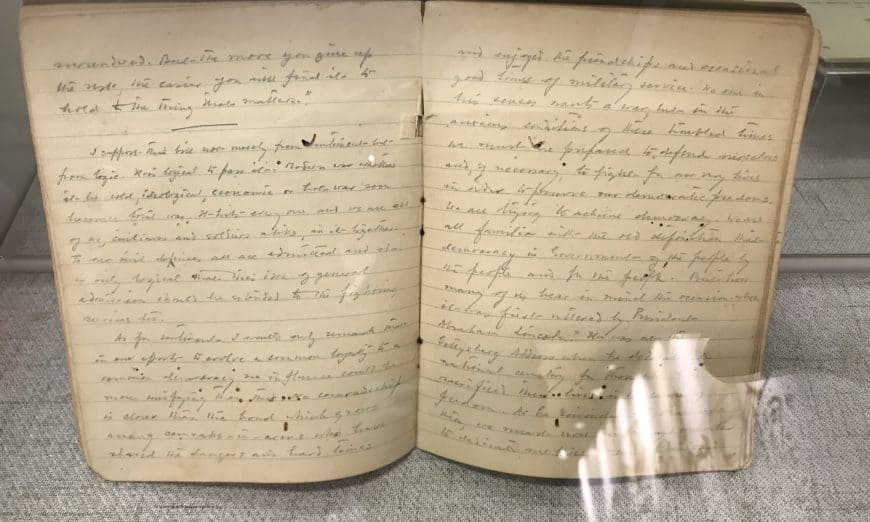 more you give up
the rest, the easier you will find it to
hold the thing that matters."
I support this bill not merely from sentiment but
from logic. It is logical to pass it. Modern war whether
it be cold, ideological, economic or hot war soon
becomes total war. It hits every one and we are all
of us, civilians and soldiers alike, in it together.
To our civil defences all are admitted and it is
only logical that this idea of general
admission should be extended to the fighting
services too.
As for sentiment I would only remark that
in our efforts to evolve a common loyalty to a
common democracy no influence could be
more unifying than this. No comradeship
is closer than the bond which grows
among comrades-in-arms who have
shared the dangers and hard times
and enjoyed the friendships and occasional
good times of military service. No one in
his senses wants a war, but in the
anxious conditions of these troubled times
we must be prepared to defend ourselves
and, if necessary, to fight for our very lives
in order to preserve our democratic freedoms.
We are trying to achieve democracy. We are
all familiar with the old definition that
democracy is Government of the people by
the people and for the people. But how
many of us bear in mind the occasion when
it was first uttered by President
Abraham Lincoln. It was at the
Gettysburg Address when he dedicated
national cemetery for those
sacrificed their lives in
freedom. As he
they
to dedicate